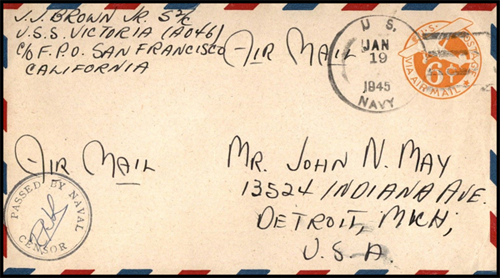 J.J. BROWN JR. S2/C
U.S.S. VICTORIA (AO46)
C/O F.P.O. SAN FRANCISCO
CALIFORNIA
AIR MAIL
U.S.
JAN
19
1945
NAVY
U.S. POSTAGE
6¢
VIA AIR MAIL
AIR MAIL
PASSED BY NAVAL
CENSOR
MR. JOHN N. MAY
13524 INDIANA AVE.
DETROIT, MICH,
U.S.A.